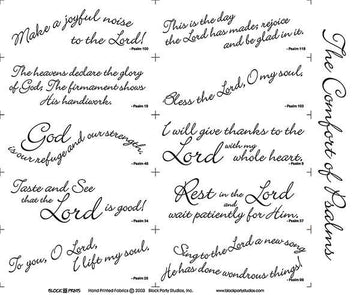 Make a joyful noise
to the Lord!
- Psalm 100
This is the day
the Lord has made; rejoice
and be glad in it.
- Psalm 118
The heavens declare the glory
of God; The firmament shows
His handiwork.
- Psalm 19
Bless the Lord, O my soul,
- Psalm 103
God
is our refuge and our strength,
- Psalm 46
I will give thanks to the
Lord with my
whole heart.
- Psalm 9
Taste and See
that the
Lord is good!
- Psalm 34
Rest in the Lord
and
wait patiently for Him.
- Psalm 37
To you, O Lord,
I lift my soul,
- Psalm 25
Sing to the Lord a new song
He has done wondrous things
- Psalm 98
The Comfort of Psalms
BLOCK PRINTS Hand Printed Fabrics © 2003 Block Party Studios, Inc. www.blockpartystudios.com